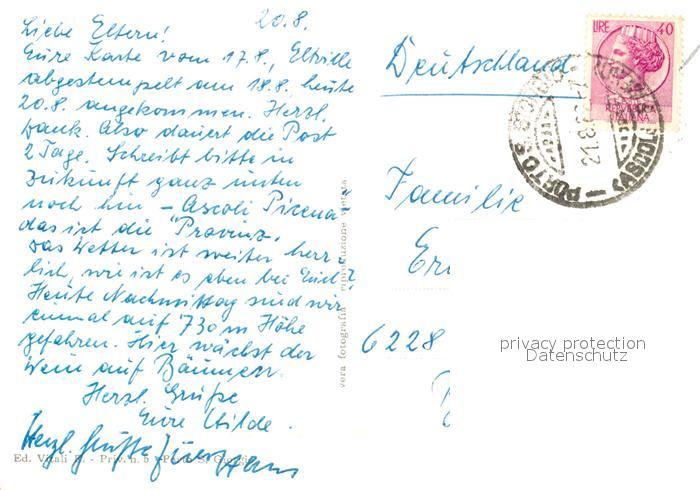 20.8.
Liebe Eltern!
Eure Karte vom 17.8., Eltville
abgestempelt am 18.8. heute
20.8. angekommen. Herzl.
Dank. Also dauert die Post
2 Tage. Schreibt bitte in
Zukunft ganz unten
noch hin - Ascoli Picena"
das ist die "Provinz.
Das Wetter ist weiter herr-
lich, wie ist es eben bei Euch?
Heute Nachmittag sind wir
einmal auf 730 m Höhe
gefahren. Hier wächst der
Wein auf Bäumen.
Herzl. Grüße
Eure Hilde.
Herzl. Grüße Euer Hans
Ed. Vitali - Priv. n. 5 - Porto S. Giorgio
vera fotografia riproduzione vietata
Deutschland
LIRE 40
REPUBBLICA
ITALIANA
PORTO S. GIORGIO
21.8
(ASCOLI
Familie
6228
privacy protection
Datenschutz